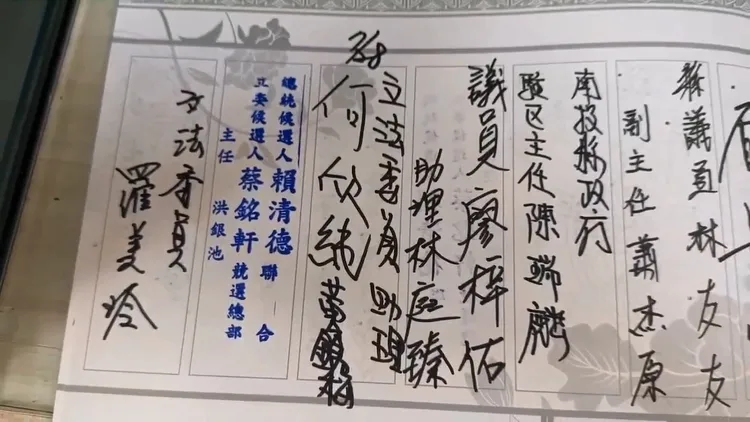 縣議員林友友
副主任蕭杰原
南投縣政府
駐区主任陳瑞麟
議員廖梓佑
助理林庭臻
立法委員助理
何欣純
總統候選人賴清德 聯合
立委候選人蔡銘軒 競選總部
主任 洪銀池
立法委員
羅美玲